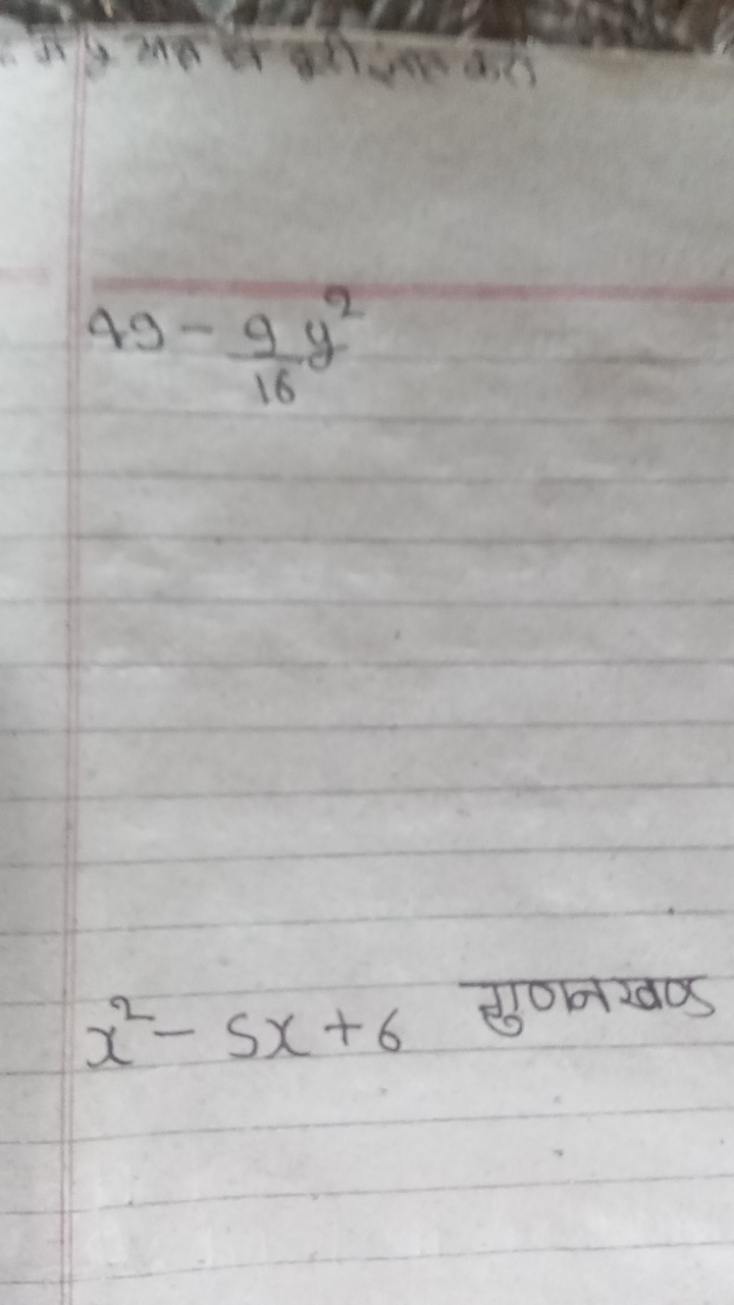 49 - 9/16 y²
x² - 5x + 6 गुणनखण्ड